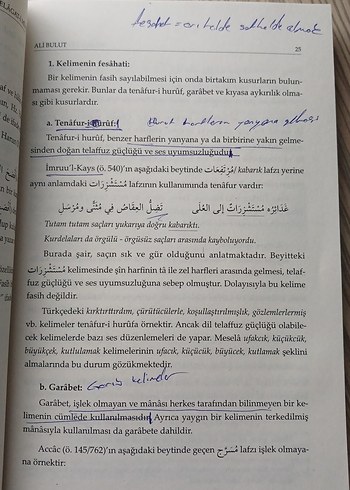 ALİ BULUT
25
1. Kelimenin fesâhati:
Bir kelimenin fasih sayılabilmesi için onda birtakım kusurların bulun-
maması gerekir. Bunlar da tenâfur-i hurûf, garâbet ve kıyasa aykırılık olma-
sı gibi kusurlardır.
a. Tenâfur-i hurûf:
Tenâfur-i hurûf, benzer harflerin yanyana ya da birbirine yakın gelme-
sinden doğan telaffuz güçlüğü ve ses uyumsuzluğudur.
İmruu'l-Kays (ö. 540)'ın aşağıdaki beytinde مُرْتَفِعَات/kabarık lafzı yerine
aynı anlamdaki مُسْتَشْزِرَات lafzının kullanımında tenâfur vardır:
غَدَائِرُه مُسْتَشْزِرَاتٌ إِلى العُلَى تَضِلُّ العِقَاصُ فِي مُثَنًّى ومُرْسَلِ
Tutam tutam saçları yukarıya doğru kabarıktı.
Kurdelaları da örgülü - örgüsüz saçları arasında kayboluyordu.
Burada şair, saçın sık ve gür olduğunu anlatmaktadır. Beyitteki
مُسْتَشْزِرَات kelimesinde şin harfinin tâ ile zel harfleri arasında gelmesi, telaf-
fuz güçlüğü ve ses uyumsuzluğuna sebep olmuştur. Dolayısıyla bu kelime
fasih değildir.
Türkçedeki kırktırttırdım, çürütücülerle, koşullaştırılmıştık, gözlemlerlermiş
vb. kelimeler tenâfur-i hurûfa örnektir. Ancak dil telaffuz güçlüğü olabile-
cek kelimelerde bazı ses düzenlemeleri de yapar. Meselâ ufakcık, küçükcük,
büyükçek, kutlulamak kelimelerinin ufacık, küçücük, büyücek, kutlamak şeklini
almalarında bu durum gözükmektedir.
b. Garâbet:
Garip kelimeler
Garâbet, işlek olmayan ve mânâsı herkes tarafından bilinmeyen bir ke-
limenin cümlede kullanılmasıdır. Ayrıca yaygın bir kelimenin terkedilmiş
mânâsıyla kullanılması da garâbete dahildir.
Accâc (ö. 145/762)'ın aşağıdaki beytinde geçen مُسَرَّج lafzı işlek olmaya-
na örnektir: